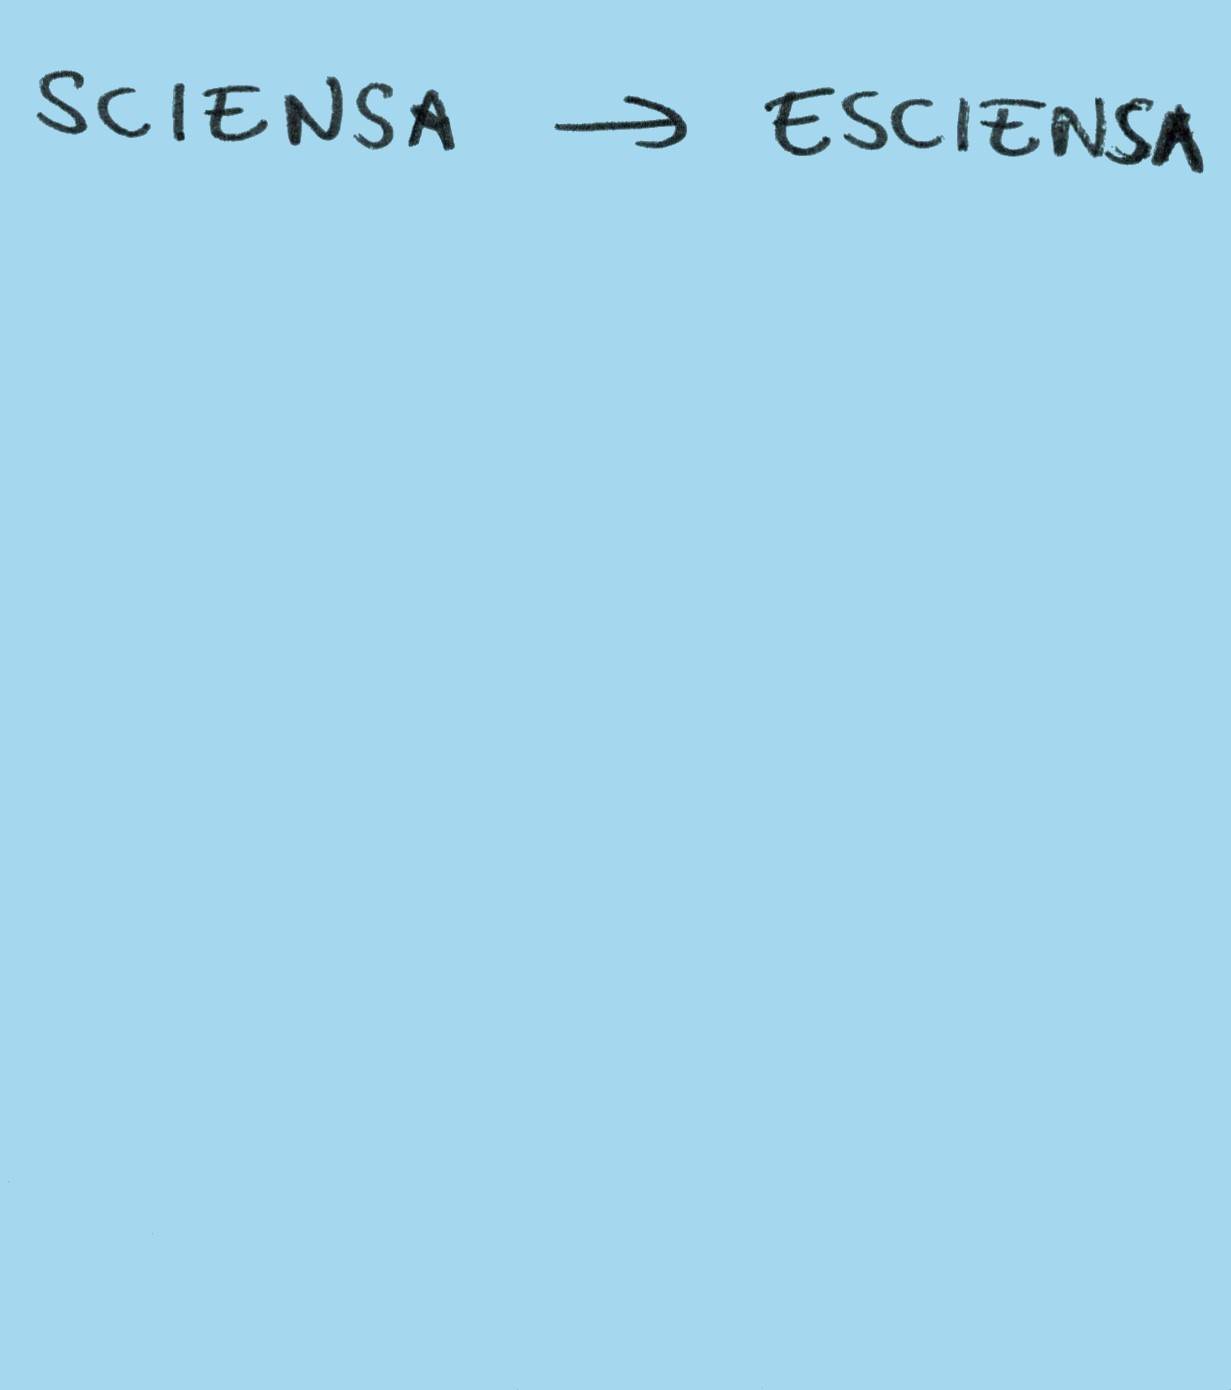 SCIENSA → ESCIENSA